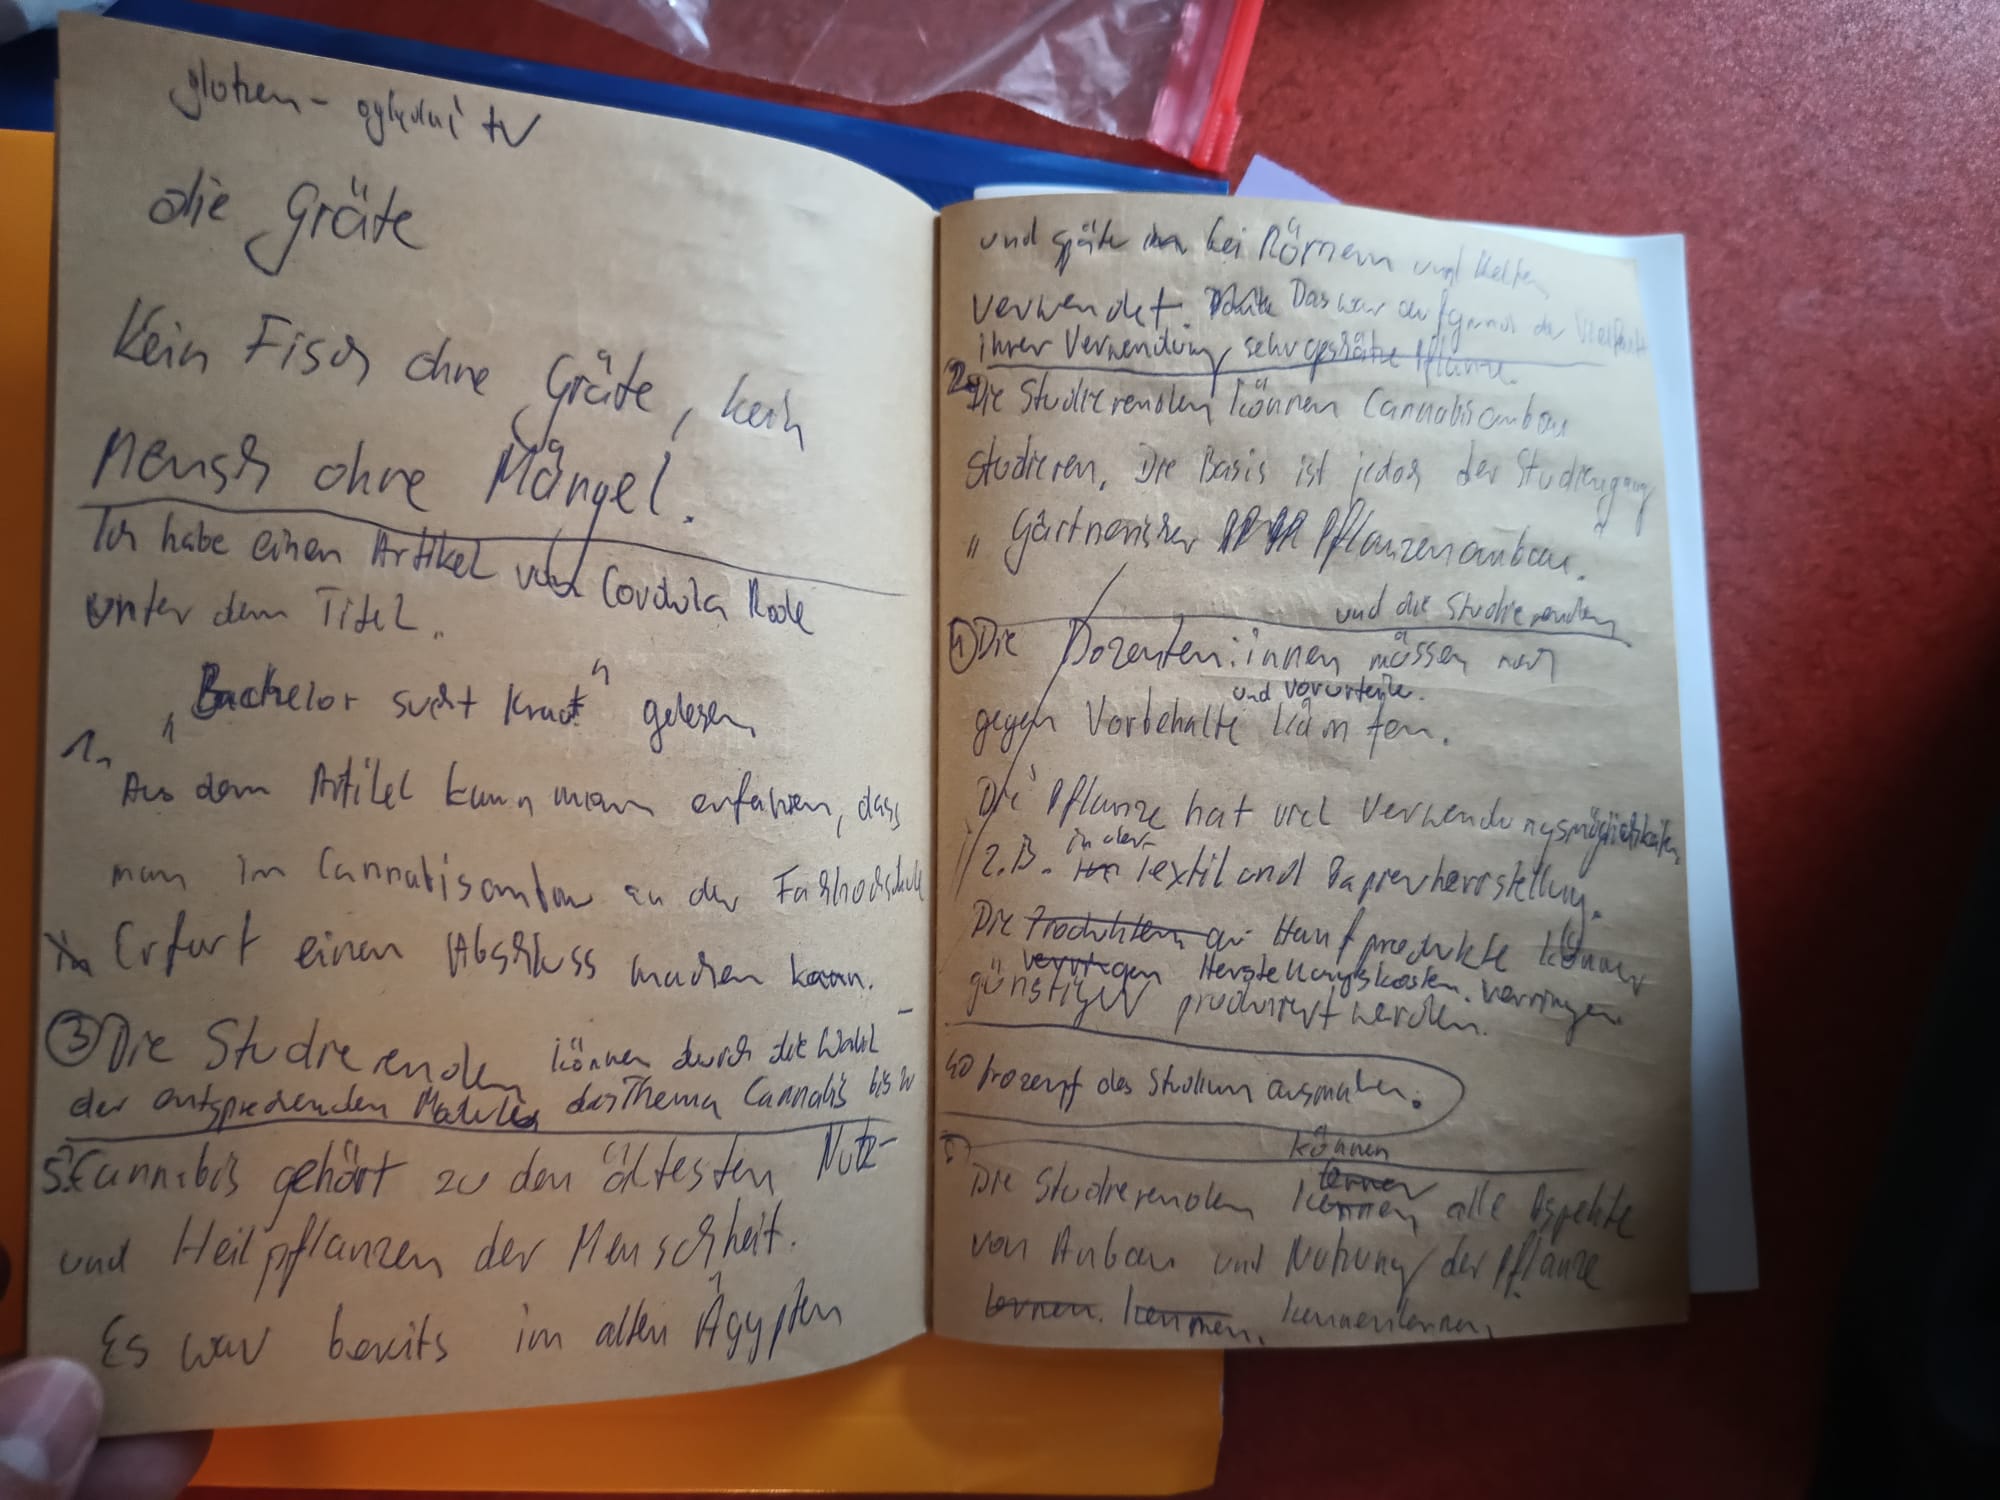 glotzen - oglądać tv
die Gräte
Kein Fisch ohne Gräte, kein
Mensch ohne Mängel.
Ich habe einen Artikel von Cordula Rode
unter dem Titel „
„Bachelor sucht Kraut" gelesen
1. Aus dem Artikel kann man erfahren, dass
man im Cannabisanbau an der Fachhochschule
Erfurt einen Abschluss machen kann.
③ Die Studierenden können durch die Wahl
der entsprechenden Module das Thema Cannabis bis zu
5. Cannabis gehört zu den ältesten Nutz-
und Heilpflanzen der Menschheit.
Es war bereits im alten Ägypten
und späte bei Römern und Kelten
verwendet. Das war aufgrund der Vielfalt
ihrer Verwendung sehr geschätzte Pflanze.
2. Die Studierenden können Cannabisanbau
studieren. Die Basis ist jedoch der Studiengang
„Gärtnerischer Pflanzenanbau."
und die Studierenden
④ Die Dozenten:innen müssen noch
und Vorurteile.
gegen Vorbehalte kämfen.
Die Pflanze hat viel Verwendungsmöglichkeiten
in der
z.B. im Textil und Papierherrstellung.
Die Produkten Hanfprodukte können
verringen Herstellungskosten verringen
günstiger produziert werden.
40 Prozent des Studium ausmachen.
können
lernen
Die Studierenden kennen alle Aspekte
von Anbau und Nutzung der Pflanze
lernen. kennen. kennenlernen.